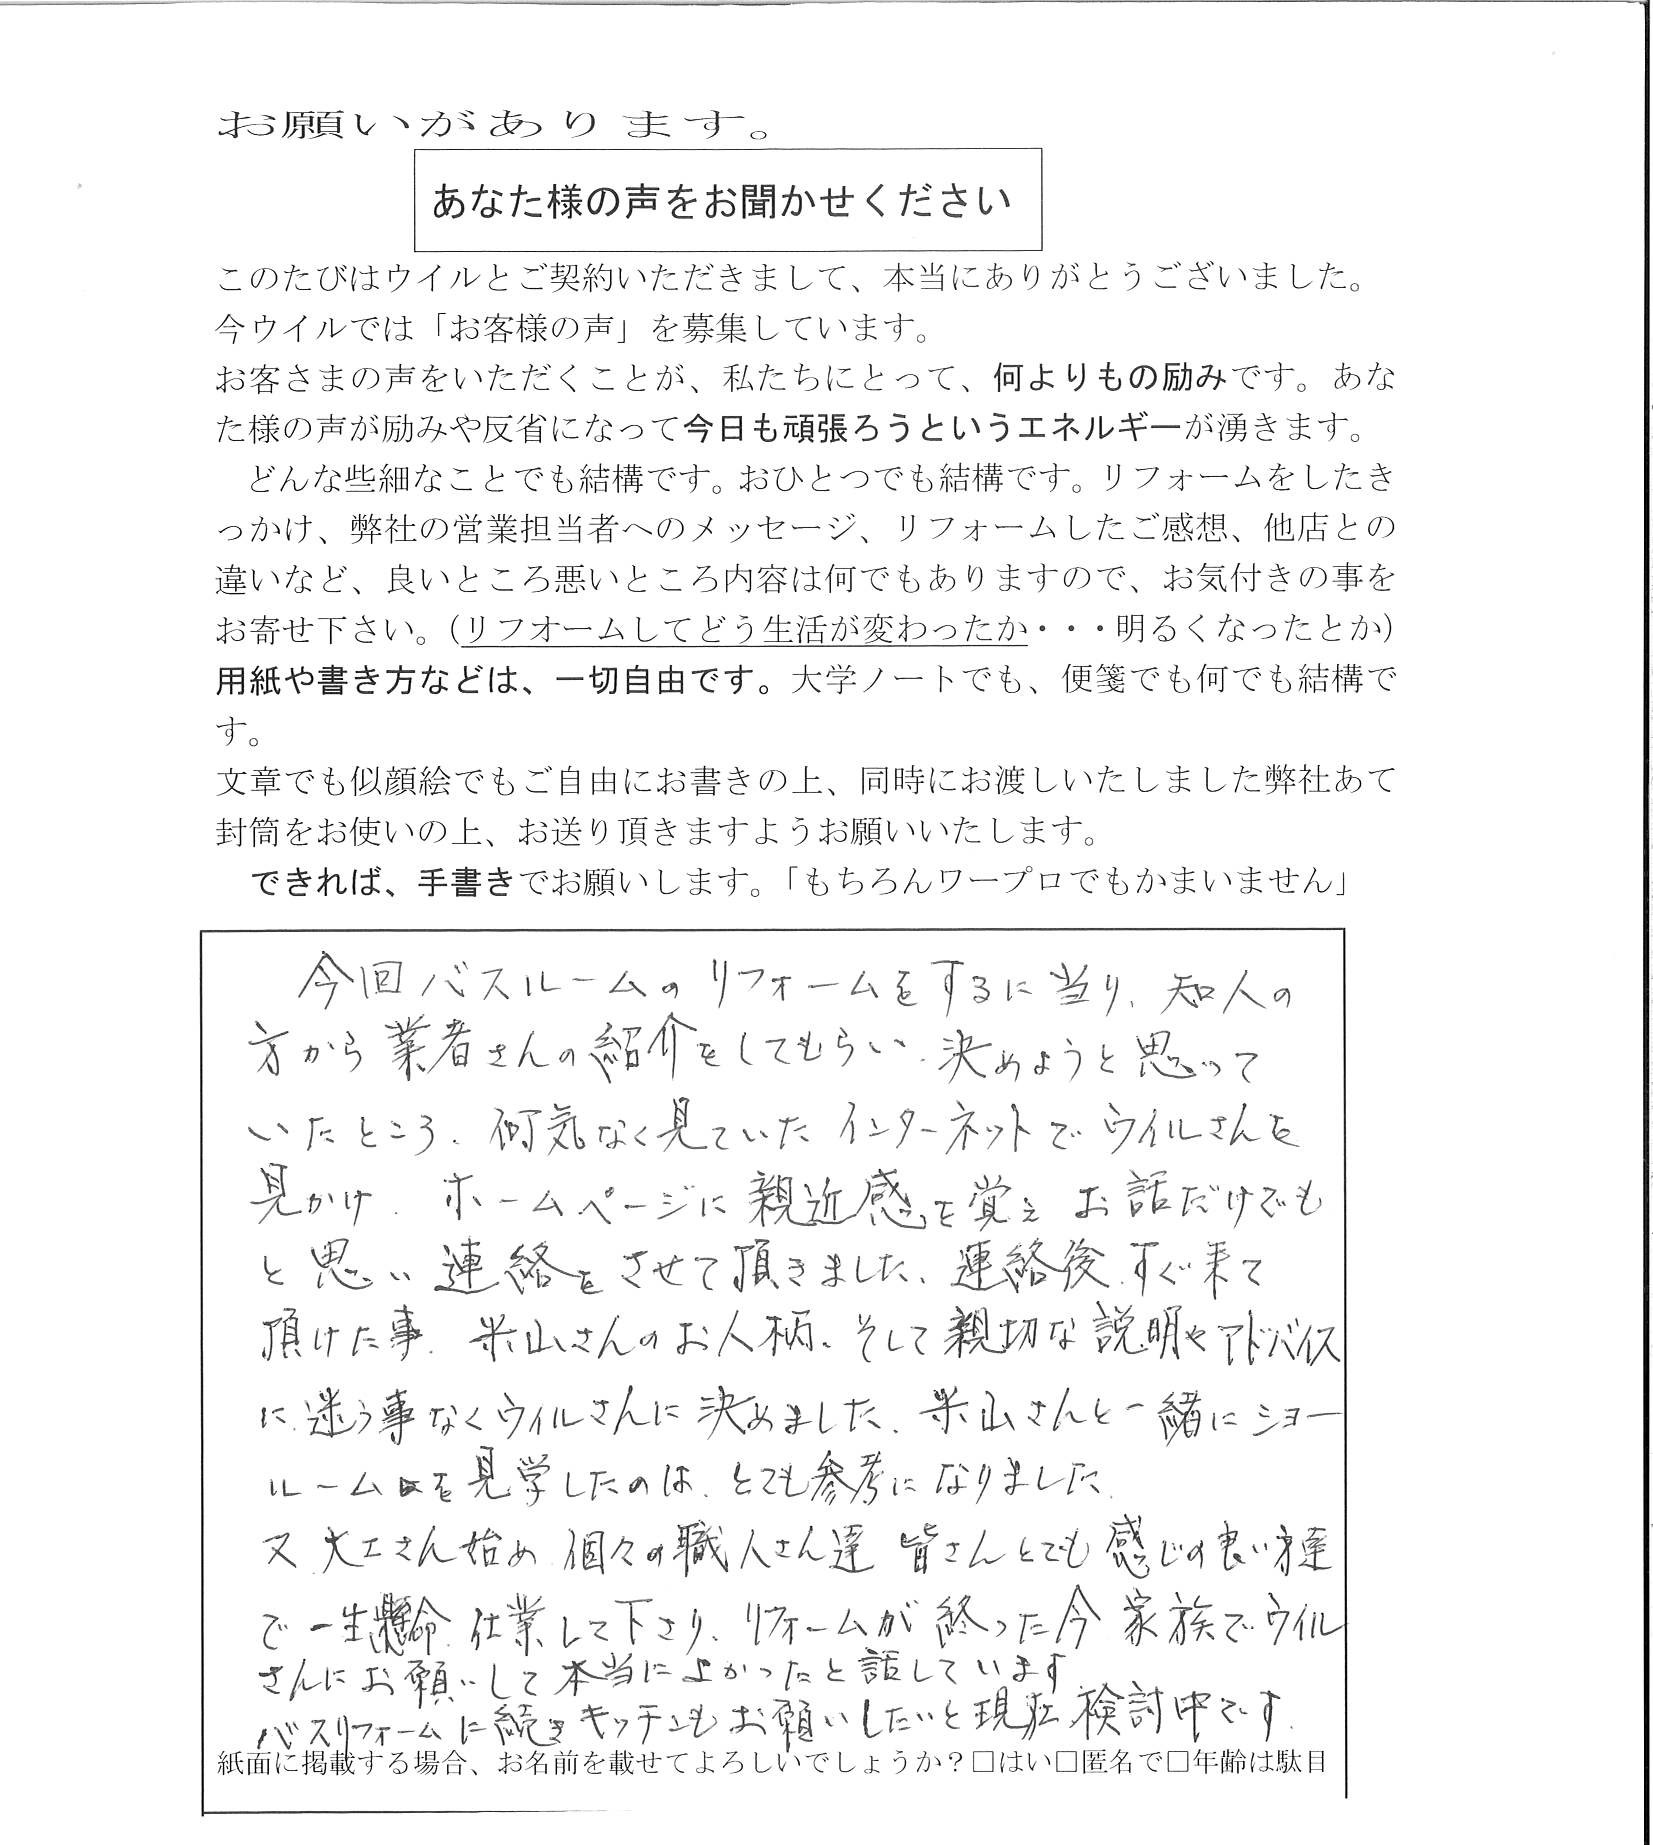 お願いがあります。
あなた様の声をお聞かせください
このたびはウイルとご契約いただきまして、本当にありがとうございました。
今ウイルでは「お客様の声」を募集しています。
お客さまの声をいただくことが、私たちにとって、何よりもの励みです。あな
た様の声が励みや反省になって今日も頑張ろうというエネルギーが湧きます。
どんな些細なことでも結構です。おひとつでも結構です。リフォームをしたき
っかけ、弊社の営業担当者へのメッセージ、リフォームしたご感想、他店との
違いなど、良いところ悪いところ内容は何でもありますので、お気付きの事を
お寄せ下さい。（リフオームしてどう生活が変わったか・・・明るくなったとか）
用紙や書き方などは、一切自由です。大学ノートでも、便箋でも何でも結構で
す。
文章でも似顔絵でもご自由にお書きの上、同時にお渡しいたしました弊社あて
封筒をお使いの上、お送り頂きますようお願いいたします。
できれば、手書きでお願いします。「もちろんワープロでもかまいません」
今回バスルームのリフォームをするに当り、知人の
方から業者さんの紹介をしてもらい、決めようと思って
いたところ、何気なく見ていたインターネットでウイルさんを
見かけ、ホームページに親近感を覚えお話だけでも
と思い連絡をさせて頂きました。連絡後、すぐ来て
頂けた事、米山さんのお人柄、そして親切な説明やアドバイス
に迷う事なくウィルさんに決めました。米山さんと一緒にショー
ルームを見学したのは、とても参考になりました。
又、大工さん始め、個々の職人さん達皆さんとても感じの良い方達
で一生懸命仕業して下さり、リフォームが終った今家族でウイル
さんにお願いして本当によかったと話しています
バスリフォームに続きキッチンもお願いしたいと現在検討中です。
紙面に掲載する場合、お名前を載せてよろしいでしょうか？□はい□匿名で□年齢は駄目